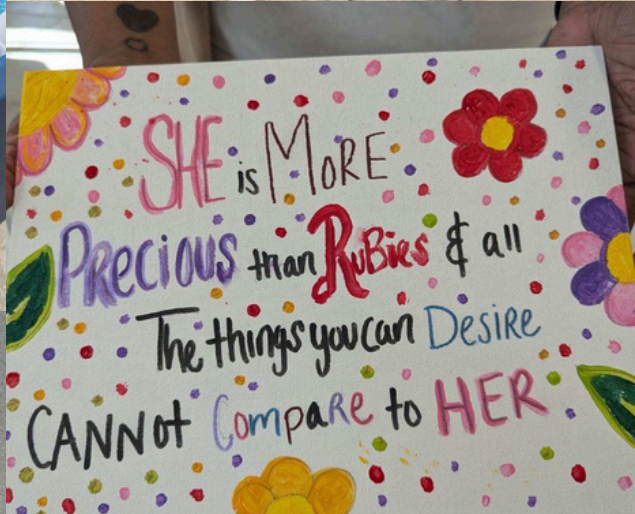 SHE is MORE
PRecious than RuBies & all
The things you can DesiRe
CANNot CompaRe to HER